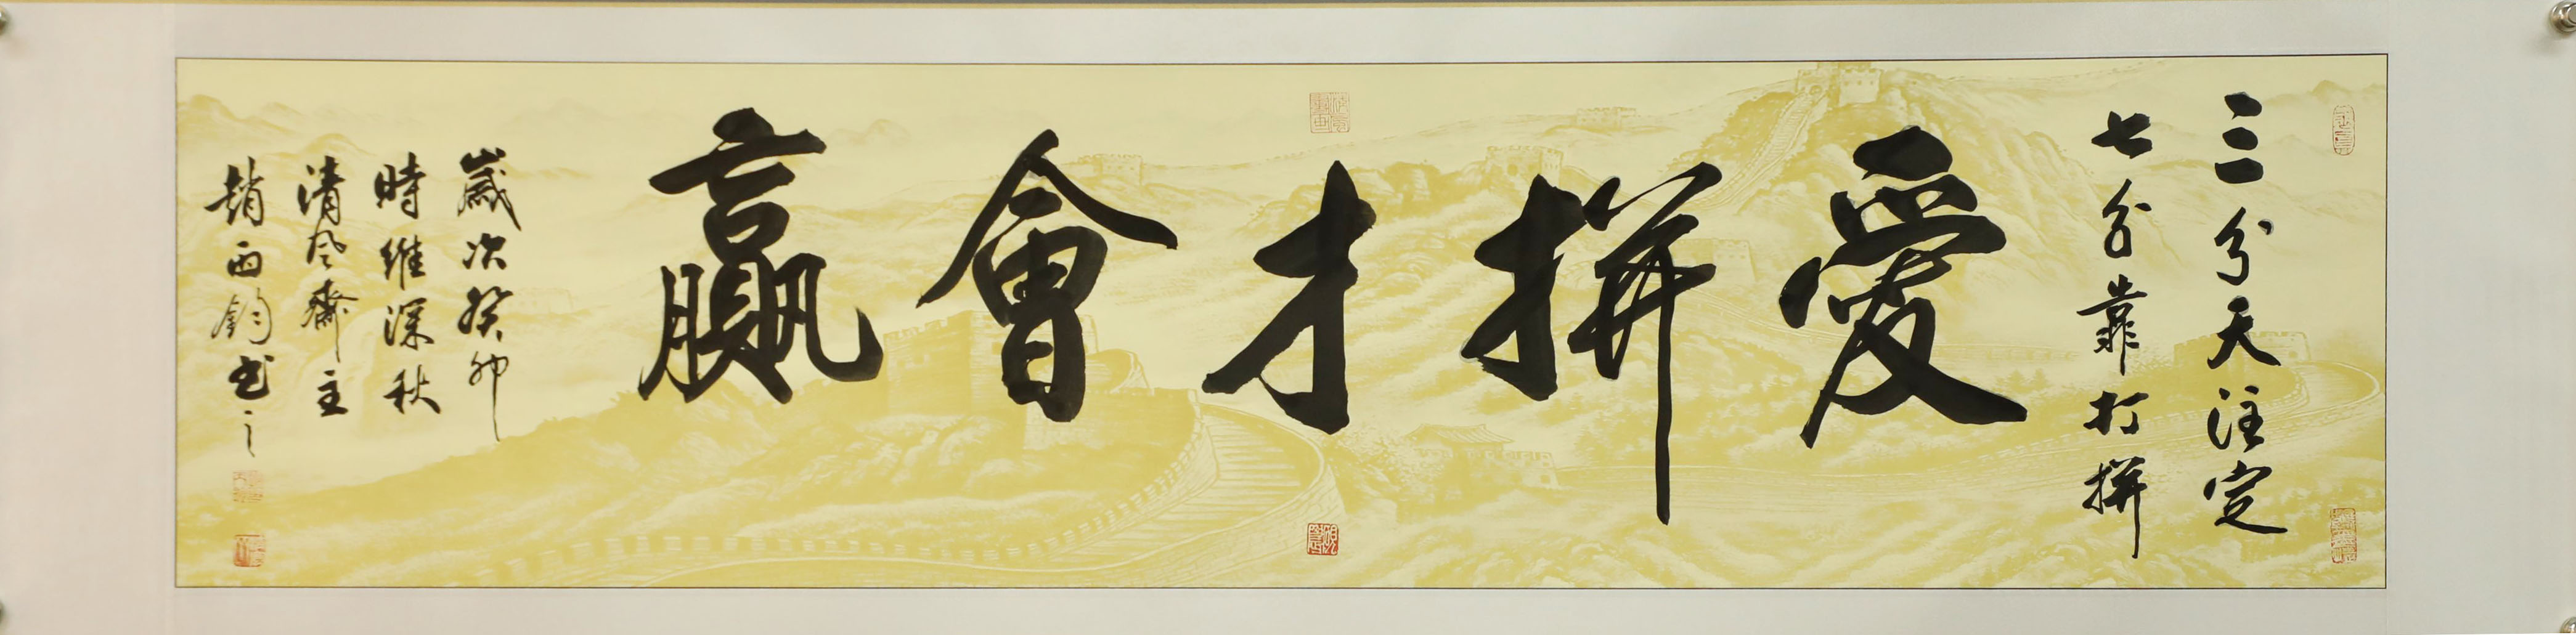 三分天注定
七分靠打拼
愛拼才會贏
歲次癸卯
時維深秋
清风齋主
趙西鈞书之